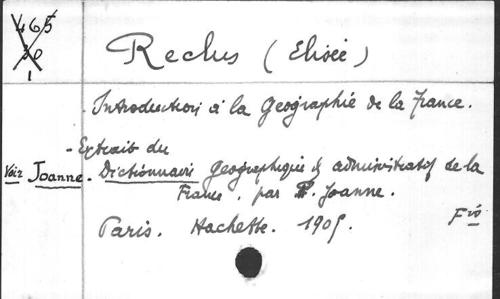 465
30
1
Reclus (Elisée)
Introduction à la Geographie de la France.
- Extrait du
Voir Joanne. Dictionnaire géographique & administratif de la
France. par P. Joanne.
Paris. Hachette. 1905. Fis